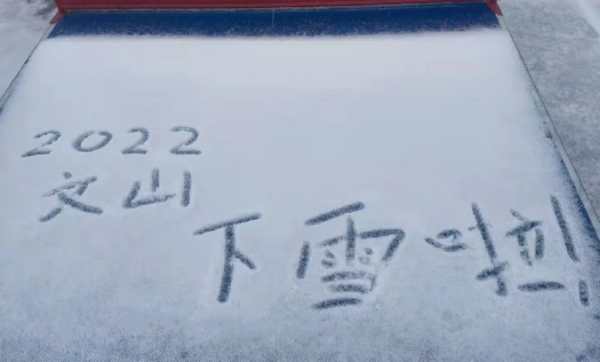 2022
文山
下雪啦!